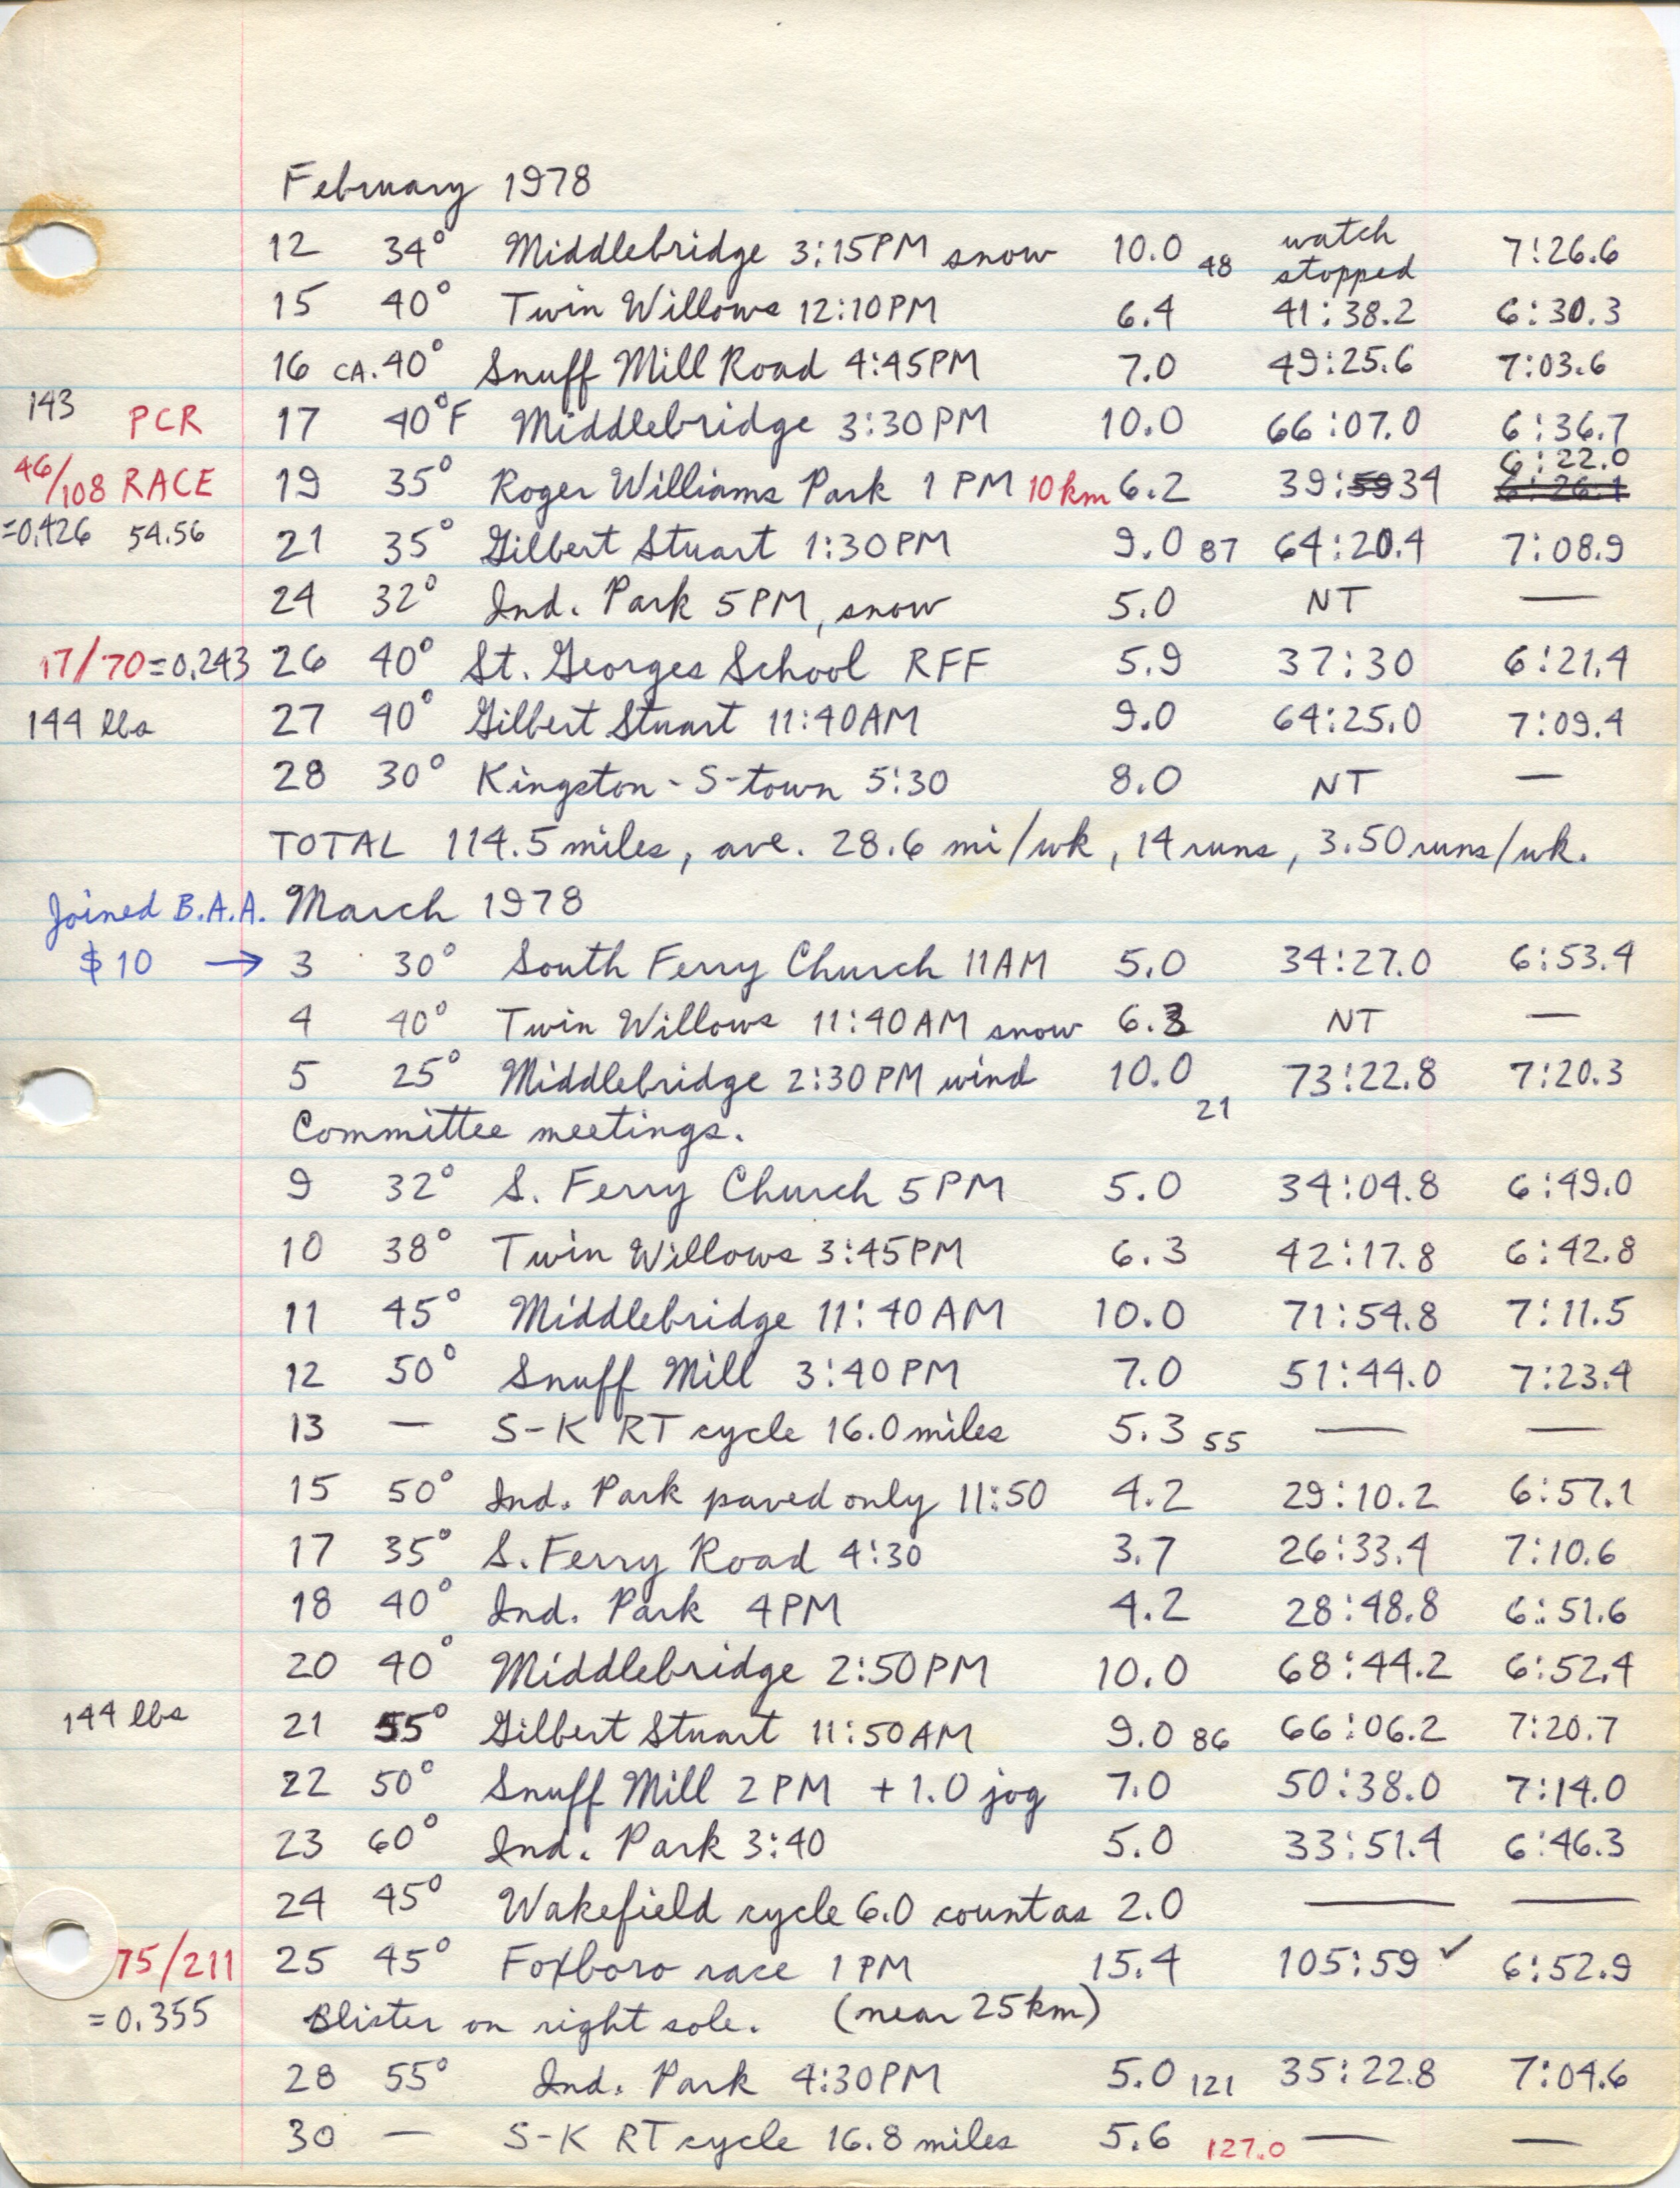 February 1978
12 34° Middlebridge 3:15PM snow 10.0 48 watch stopped 7:26.6
15 40° Twin Willows 12:10PM 6.4 41:38.2 6:30.3
16 CA. 40° Snuff Mill Road 4:45PM 7.0 49:25.6 7:03.6
143 PCR 17 40°F Middlebridge 3:30PM 10.0 66:07.0 6:36.7
46/108 RACE 19 35° Roger Williams Park 1PM 10km 6.2 39:59 34 6:22.0 6:26.1
=0.426 54.56 21 35° Gilbert Stuart 1:30PM 9.0 87 64:20.4 7:08.9
24 32° Ind. Park 5PM, snow 5.0 NT —
17/70=0.243 26 40° St. Georges School RFF 5.9 37:30 6:21.4
144 lbs 27 40° Gilbert Stuart 11:40AM 9.0 64:25.0 7:09.4
28 30° Kingston-S-town 5:30 8.0 NT —
TOTAL 114.5 miles, ave. 28.6 mi/wk, 14 runs, 3.50 runs/wk.
Joined B.A.A. March 1978
$10 → 3 30° South Ferry Church 11AM 5.0 34:27.0 6:53.4
4 40° Twin Willows 11:40AM snow 6.3 NT —
5 25° Middlebridge 2:30PM wind 10.0 21 73:22.8 7:20.3
Committee meetings.
9 32° S. Ferry Church 5PM 5.0 34:04.8 6:49.0
10 38° Twin Willows 3:45PM 6.3 42:17.8 6:42.8
11 45° Middlebridge 11:40AM 10.0 71:54.8 7:11.5
12 50° Snuff Mill 3:40PM 7.0 51:44.0 7:23.4
13 — S-K RT cycle 16.0 miles 5.3 55 — —
15 50° Ind. Park paved only 11:50 4.2 29:10.2 6:57.1
17 35° S. Ferry Road 4:30 3.7 26:33.4 7:10.6
18 40° Ind. Park 4PM 4.2 28:48.8 6:51.6
20 40° Middlebridge 2:50PM 10.0 68:44.2 6:52.4
144 lbs 21 55° Gilbert Stuart 11:50AM 9.0 86 66:06.2 7:20.7
22 50° Snuff Mill 2PM +1.0 jog 7.0 50:38.0 7:14.0
23 60° Ind. Park 3:40 5.0 33:51.4 6:46.3
24 45° Wakefield cycle 6.0 count as 2.0 — —
75/211 25 45° Foxboro race 1PM 15.4 105:59 ✓ 6:52.9
=0.355 Blister on right sole. (near 25km)
28 55° Ind. Park 4:30PM 5.0 121 35:22.8 7:04.6
30 — S-K RT cycle 16.8 miles 5.6 127.0 — —